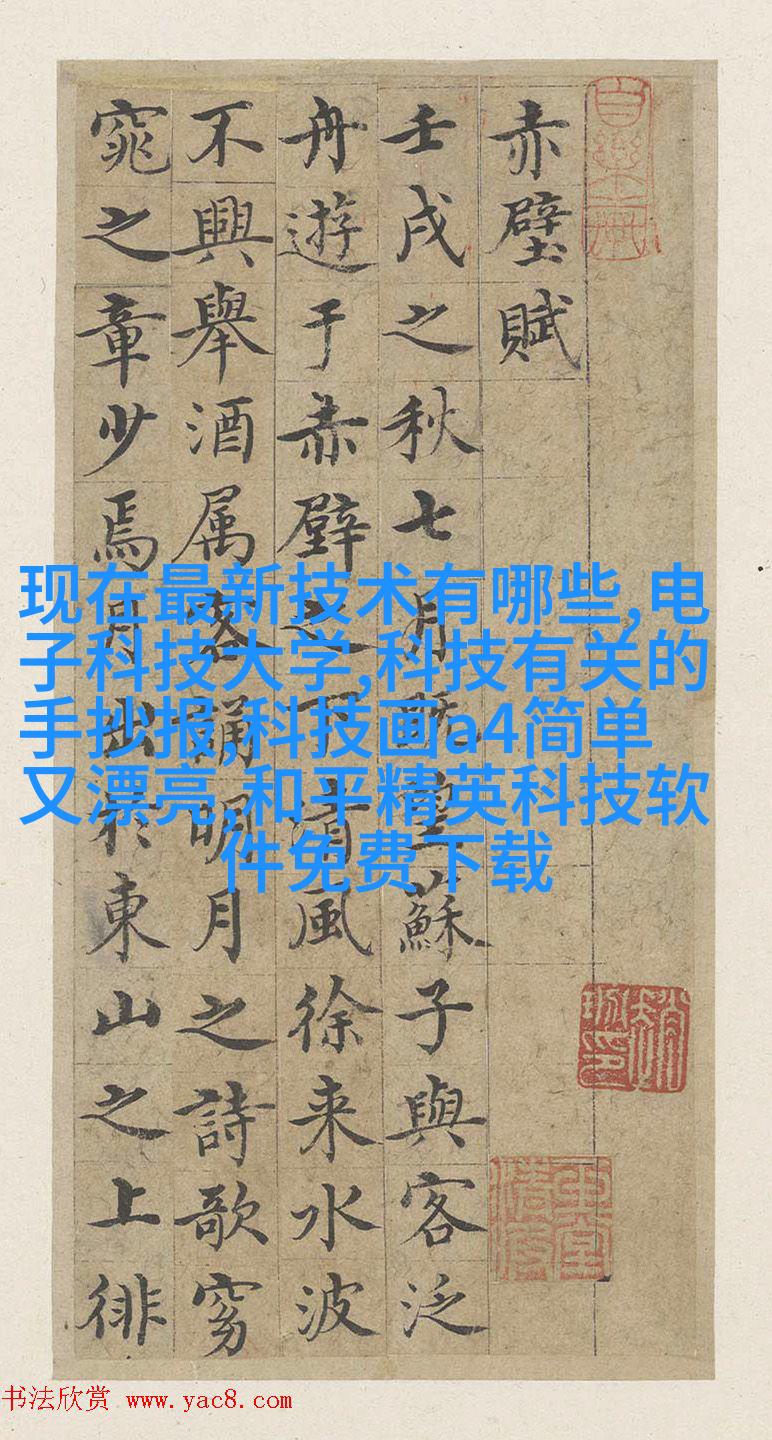 赤壁賦
壬戌之秋七月既望蘇子與客泛
舟遊于赤壁之下清風徐来水波
不興舉酒属客誦明月之詩歌窈
窕之章少焉月出於東山之上徘
现在最新技术有哪些,电
子科技大学,科技有关的
手抄报,科技画a4简单
又漂亮,和平精英科技软
件免费下载
书法欣赏 www.yac8.com